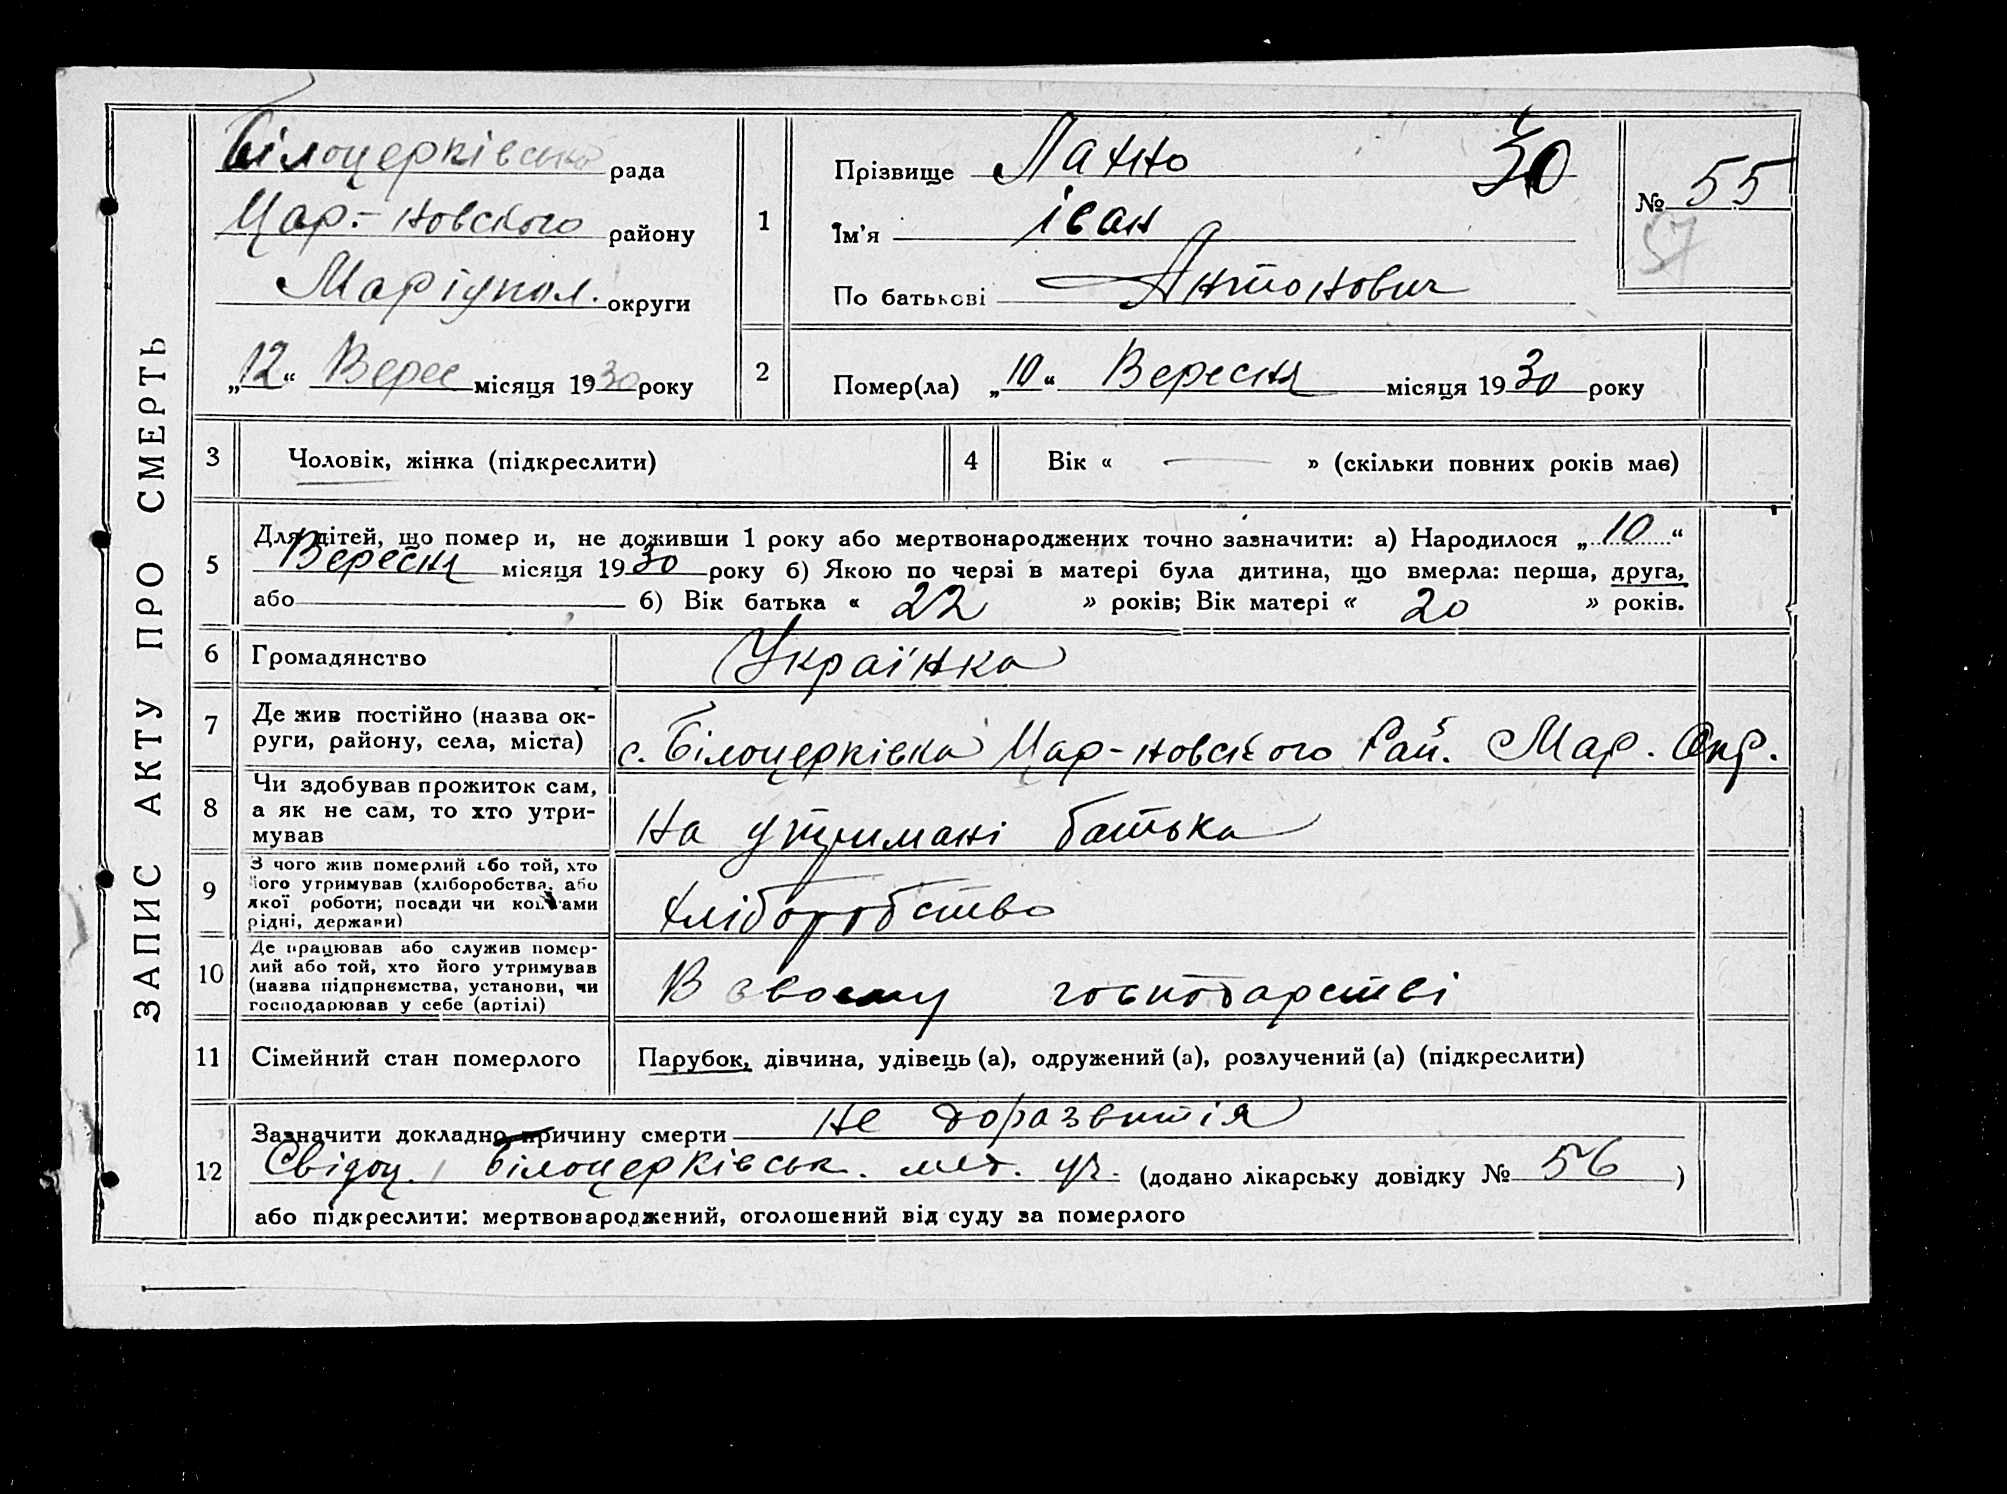 ЗАПИС АКТУ ПРО СМЕРТЬ
Білоцерківська рада
Цар.-новського району
Маріупол. округи
„12“ Верес місяця 1930 року
1
Прізвище Лахно
30
Ім'я Іван
По батькові Антонович
№ 55
57
2
Помер(ла) „10“ Вересня місяця 1930 року
3 Чоловік, жінка (підкреслити)
4 Вік « — » (скільки повних років мав)
5 Для дітей, що помер и, не доживши 1 року або мертвонароджених точно зазначити: а) Народилося „10“
Вересня місяця 1930 року б) Якою по черзі в матері була дитина, що вмерла: перша, друга,
або б) Вік батька « 22 » років; Вік матері « 20 » років.
6 Громадянство Українка
7 Де жив постійно (назва ок-
руги, району, села, міста)
с. Білоцерківка Цар-новського Рай. Мар. Окр.
8 Чи здобував прожиток сам,
а як не сам, то хто утри-
мував
на утримані батька
9 З чого жив померлий або той, хто
його утримував (хліборобства, або
якої роботи; посади чи коштами
рідні, держави)
хліборобство
10 Де працював або служив помер-
лий або той, хто його утримував
(назва підприємства, установи, чи
господарював у себе (артілі)
В своєму господарстві
11 Сімейний стан померлого
Парубок, дівчина, удівець (а), одружений (а), розлучений (а) (підкреслити)
12 Зазначити докладно причину смерти не доразвитія
Свідоц. Білоцерківськ. мед. уч. (додано лікарську довідку № 56 )
або підкреслити: мертвонароджений, оголошений від суду за померлого